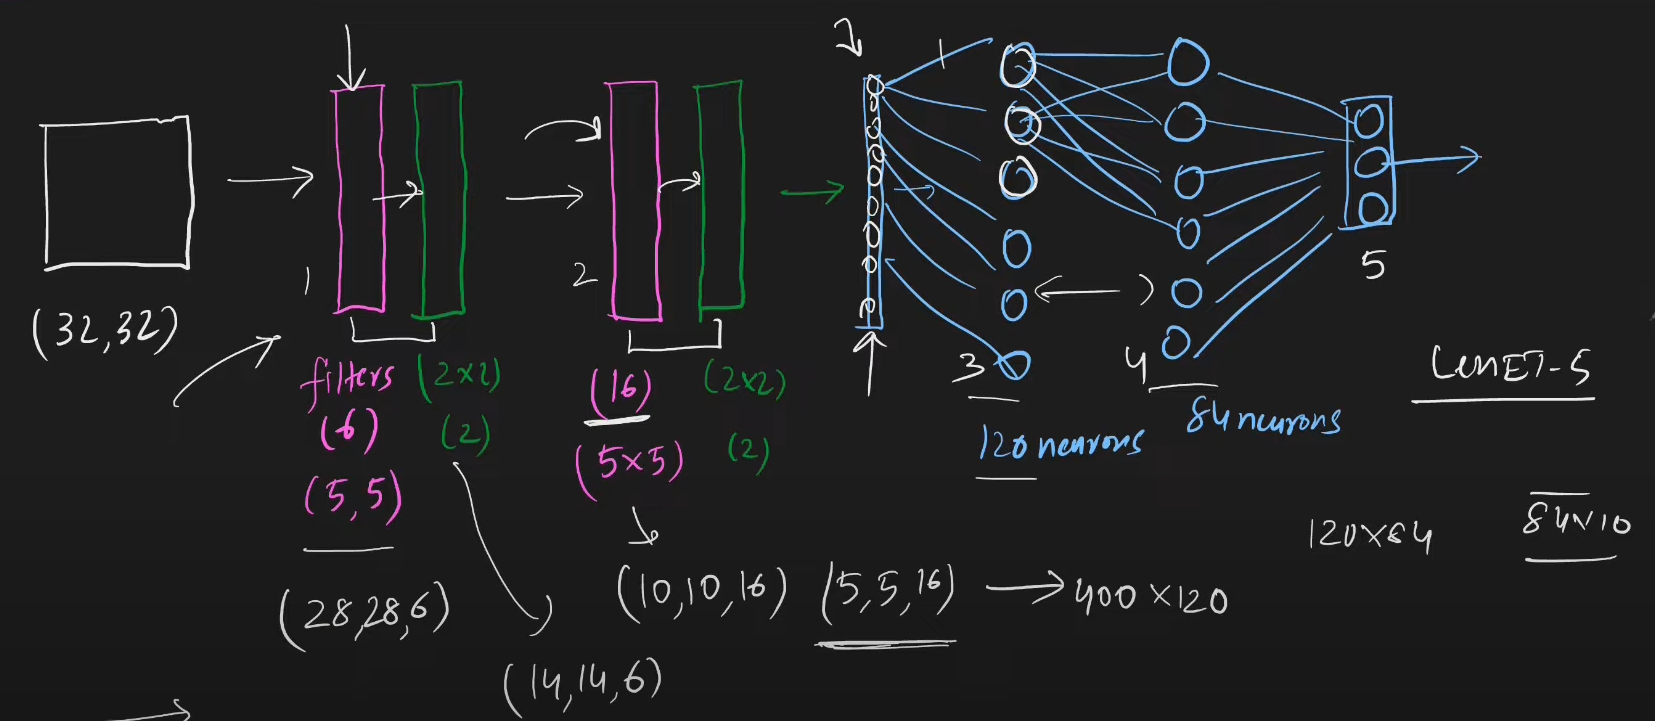 (32,32)
1
filters
(6)
(5,5)
(28,28,6)
(2x2)
(2)
(14,14,6)
2
(16)
(5x5)
(10,10,16)
(2x2)
(2)
(5,5,16)
400x120
1
3
120 neurons
4
84 neurons
5
LenET-5
120x84
84x10